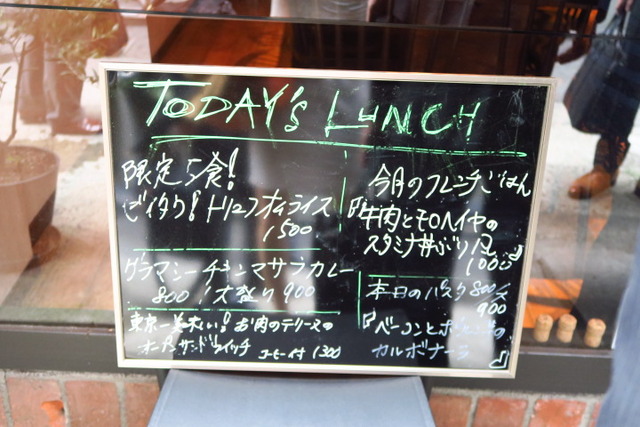 TODAY's LUNCH
限定5食!
ゼイタク!トリュフオムライス
1500
グラマシーチキンマサラカレー
800 大盛り 900
東京一美味い!お肉のテリーヌの
オープンサンドウィッチ コーヒー付 1300
今月のフレンチごはん
『牛肉とモロヘイヤの
スタミナ丼ぶり』
1000
本日のパスタ 800
900
『ベーコンと の
カルボナーラ 』